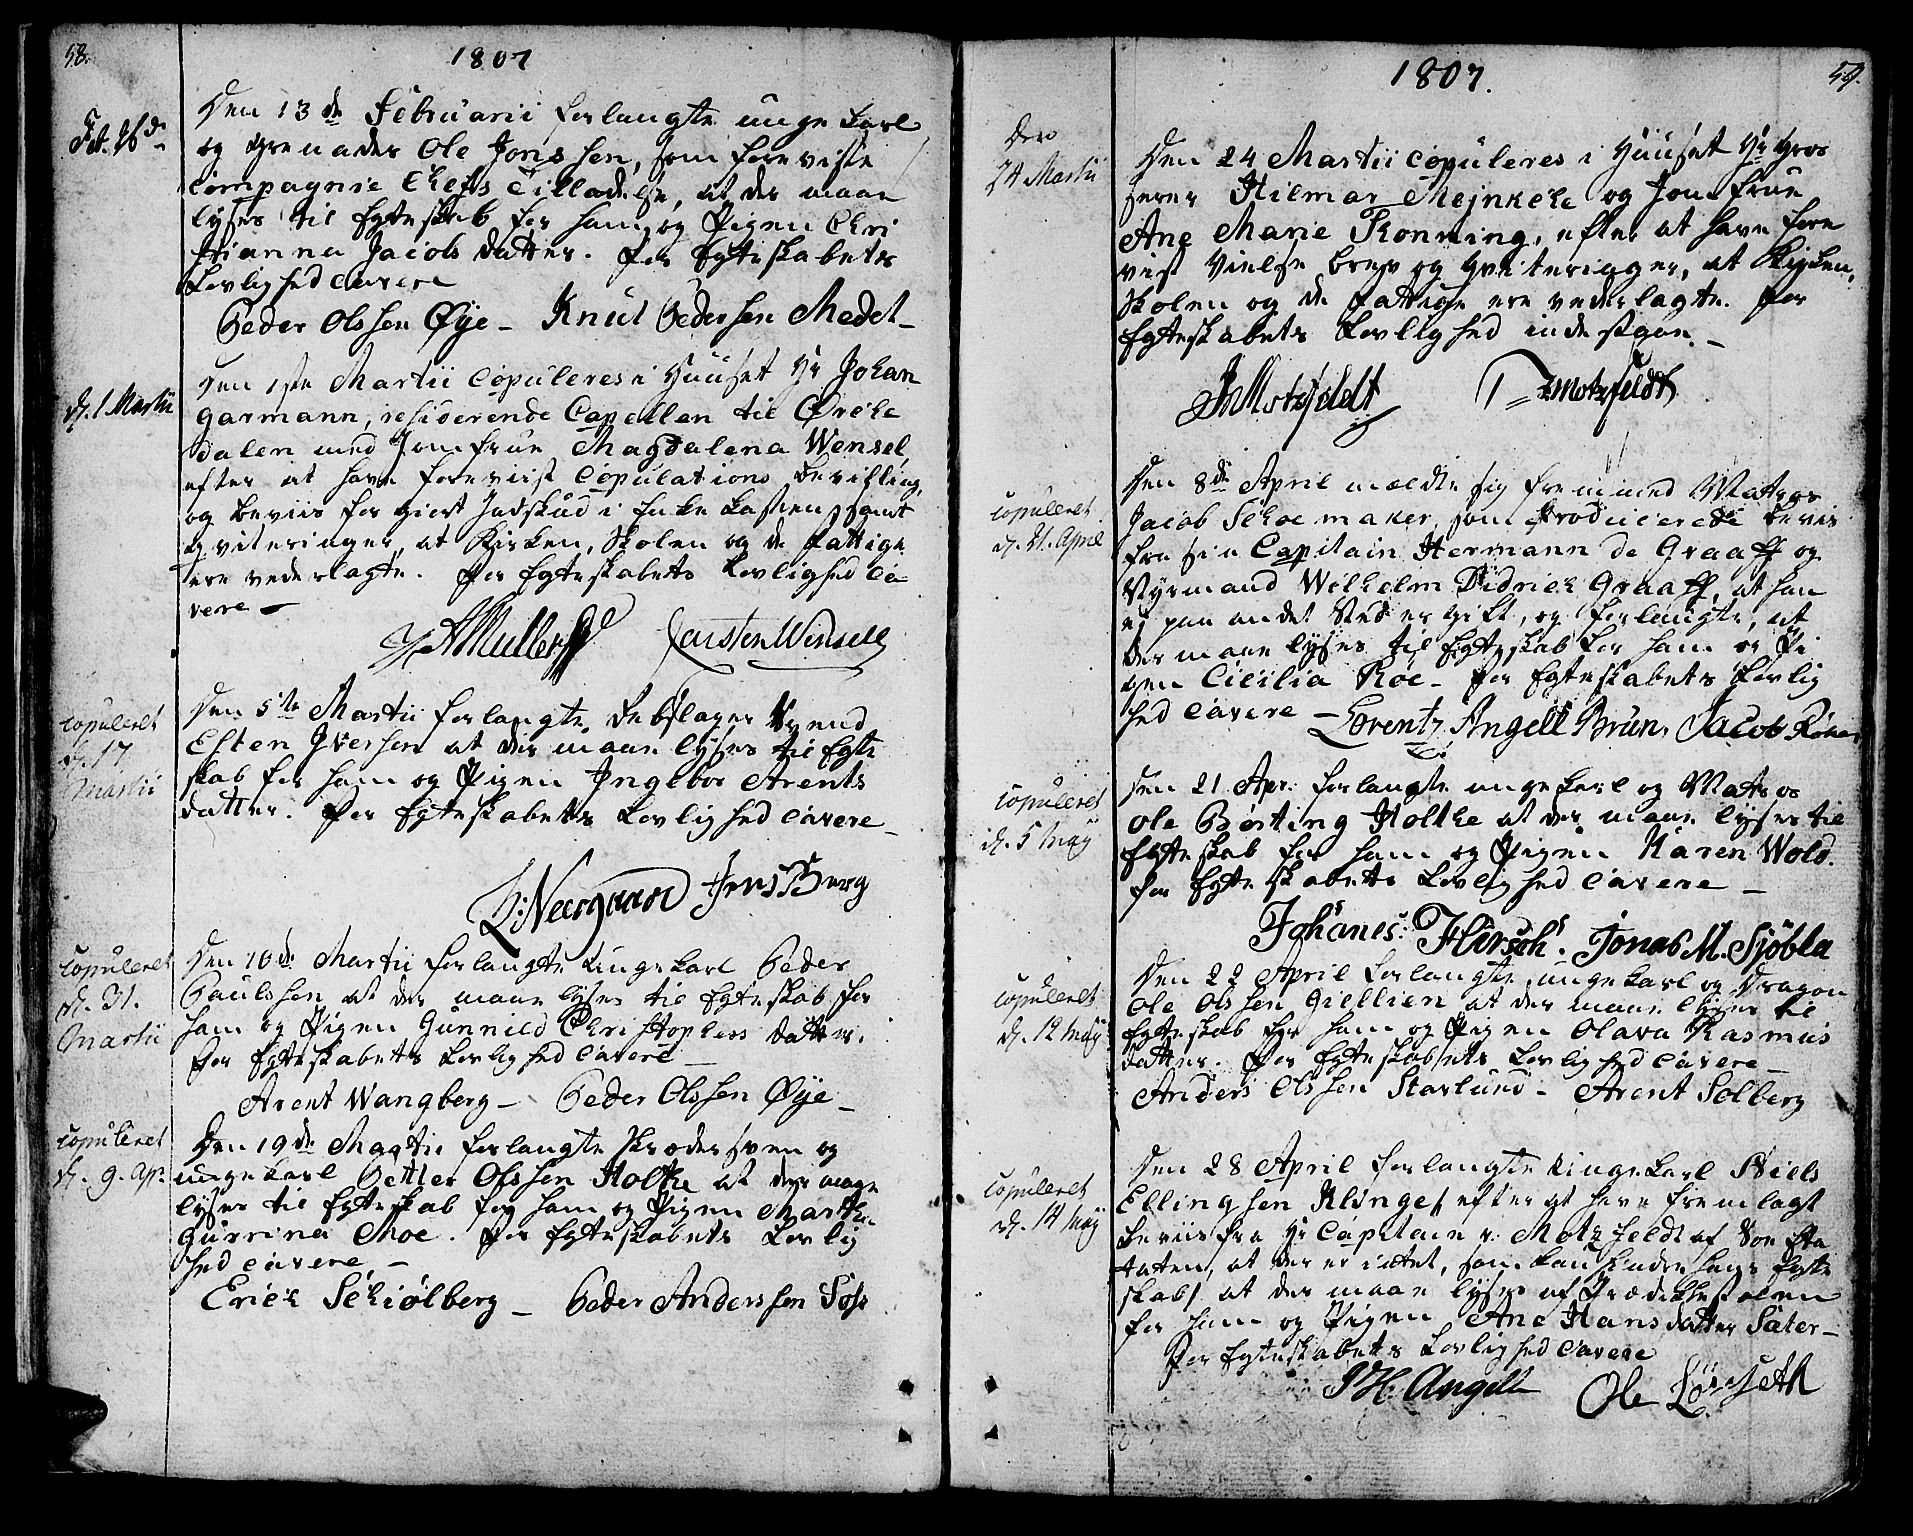 58.
1807
Feb. 26de
Den 13de Februarii forlangte unge Karl
og Grenader Ole Jonssen, som foreviste
Compagnie Chefs Tilladelse, at der maae
lyses til Egteskab for ham og Pigen Chri
stianna Jacobs datter. For Egteskabets
Lovlighed cavere
Peder Olssen Øye - Knut Pedersen Medel-
d. 1 Martii
Den 1ste Martii copuleres i Huuset Hr Johan
Garmann, residerende Capellan til Ørke
dalen med Jomfrue Magdalena Wensel,
efter at have foreviist Copulations Bevilling,
og Beviis for giort Indskud i Enke Kassen, samt
Qviteringer, at Kirken, Skolen og de fattige
ere vederlagte. For Egteskabets Lovlighed ca-
vere -
Müller Carsten Wensell
copuleret
d. 17
Martii
Den 5te Martii forlangte Rebslager Svend
Esten Iversen at der maae lyses til Egte
skab for ham og Pigen Ingebor Arents
datter. For Egteskabets Lovlighed cavere -
Neergaard Jens Berg
copuleret
d. 31.
Martii
Den 10de Martii forlangte Ungekarl Peder
Paulssen at der maae lyses til Egteskab for
ham og Pigen Gunnild Christophers datter.
For Egteskabets Lovlighed cavere -
Arent Wangberg - Peder Olssen Øye -
copuleret
d. 9. Apr.
Den 19de Martii forlangte Skrædersvend og
ungekarl Petter Olssen Holtke at der maae
lyses til Egteskab for ham og Pigen Martha
Gurrina Moe. For Egteskabets Lovlig
hed cavere -
Erich Schiølberg - Peder Anderssen
59.
1807.
Den
24 Martii
Den 24 Martii copuleres i Huuset Hr Gros
serer Hilmar Mejncke og Jomfrue
Ane Marie Konning, efter at have fore
viist Vielse brev og Qviteringer, at Kirken,
Skolen og de fattige ere vederlagte. For
Egteskabets Lovlighed indestaae. -
Motzfeldt Motzfeldt
copuleret
d. 21. April
Den 8de April meldte sig fremmed Matros
Jacob Schoemaker, som producerede Bevis
fra sin Capitain Hermann de Graaff og
Styrmand Wilhelm Didrich Graaff, at han
ej paa andet Sted er gift, og forlangte, at
der maae lyses til Egteskab for ham og Pi
gen Cicilia Roe - For Egteskabets Lovlig
hed cavere - Lorentz Angell Brun, Jacob
copuleret
d. 5 May
Den 21 Apr. forlangte ungekarl og Matros
Ole Børting Holtke at der maae lyses til
Egteskab for ham og Pigen Karen Wold.
for Egteskabets Lovlighed cavere -
Johanes: Hirsch. Jonas M. Sjöbla
copuleret
d. 12 May
Den 22 April forlangte ungekarl og Dragon
Ole Olssen Giellien at der maae lyses til
Egteskab for ham og Pigen Olava Rasmus
datter. For Egteskabets Lovlighed cavere -
Anders Olssen Starlund - Arent Solberg
copuleret
d. 14 May
Den 28 April forlangte ungekarl Niels
Ellingsen Klinge, efter at have fremlagt
Beviis fra Hr Capitain v. Motzfeldt af Søe Eta
taten, at der er intet, som kan hindre hans Egte
skab, at der maae lyses af Prædikestolen
for ham og Pigen Ane Hansdatter Sæter -
For Egteskabets Lovlighed cavere
Angell Ole